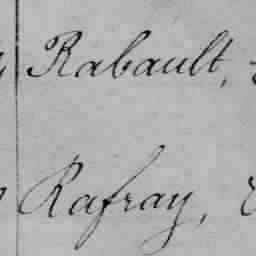 Rabault,
Rafray,